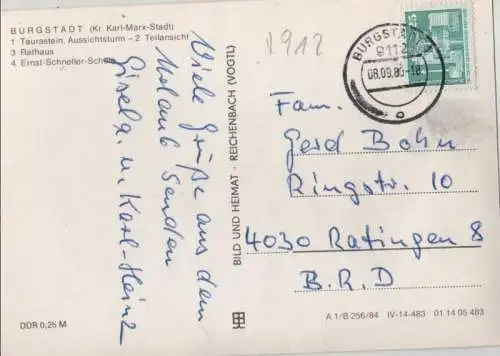 BURGSTÄDT (Kr. Karl-Marx-Stadt)
1 Taurastein, Aussichtsturm – 2 Teilansicht
3 Rathaus
4 Ernst-Schneller-Schule
Viele Grüße aus dem
Urlaub senden
Gisela u. Karl-Heinz
DDR 0,25 M
BILD UND HEIMAT · REICHENBACH (VOGTL)
BURGSTÄDT
9112
08.09.86-18
Fam.
Gerd Bohn
Ringstr. 10
4030 Ratingen 8
B.R.D
A 1/B 256/84 IV-14-483 01 14 05 483